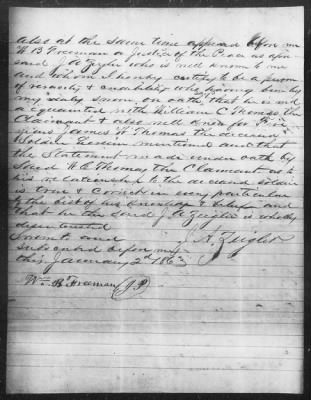 also at the same time appeard before me
W B Freeman a Justice of the Peace as afore
said J A Zeigler who is well known to me
and whom I hereby certify to be a person
of veracity & credibility who having been by
me duly sworn, on oath, says that he is well
acquainted with William C Thomas the
Claimant & also well knew for
years James W Thomas the deceased
Soldier herein mentioned and that
the Statement made under oath by
said W C Thomas the Claimant as to
his relationship to the deceased soldier
is true & correct in every particular
to the best of his knowledge & belief and
that he the said J A Zeigler is wholly
disinterested
Sworn to and J. A. Zeigler
subscribed before me
this January 2nd 1863
Wm B Freeman (J P)